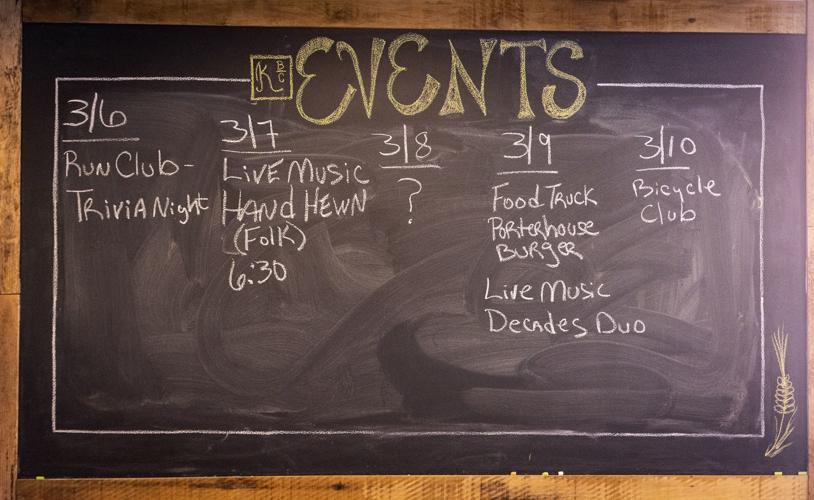 KBC EVENTS
3/6
Run Club -
Trivia Night
3/7
Live Music
Hand Hewn
(Folk)
6:30
3/8
?
3/9
Food Truck
Porterhouse
Burger
Live Music
Decades Duo
3/10
Bicycle
Club